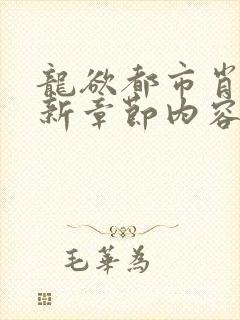 龍欲都市肖
新章節内容
毛華為